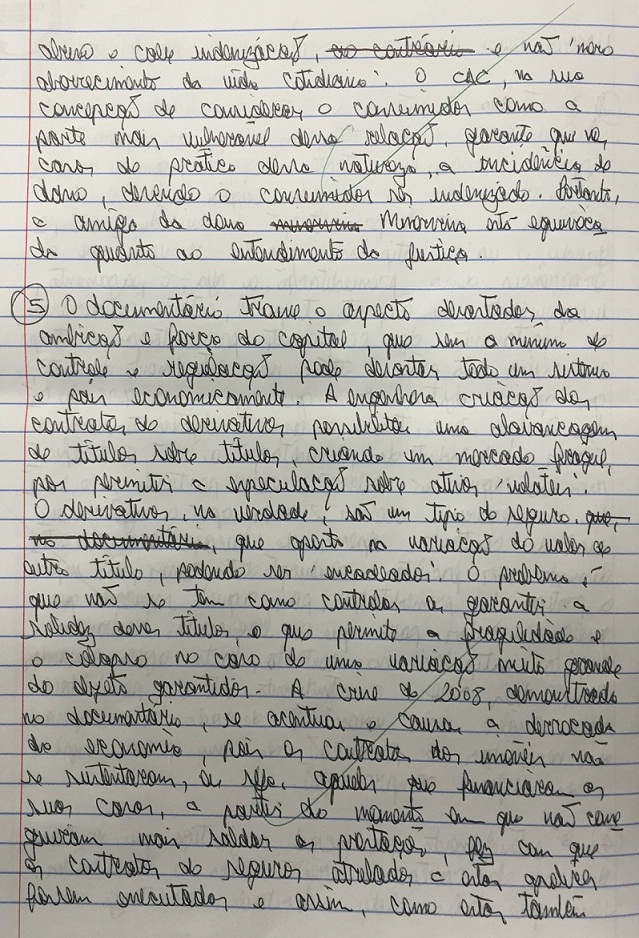 abuso e cabe indenização, e não 'mero
aborrecimento da vida cotidiana'. O CDC, na sua
concepção de considerar o consumidor como a
parte mais vulnerável dessa relação, garante que nes
casos de prática dessa natureza, a incidência do
dano, devendo o consumidor ser indenizado. Portanto,
a amiga da dona Minervina está equivoca
da quanto ao entendimento da justiça.
5 O documentário trouxe o aspecto devastador da
ambição e força do capital, que sem o mínimo de
controle e regulação pode devastar todo um sistema
e país economicamente. A engenhosa criação dos
contratos de derivativos possibilitou uma alavancagem
de títulos sobre títulos, criando um mercado fraque,
por permitir a especulação sobre ativos 'voláteis'.
O derivativos, na verdade, são um tipo de seguro que,
no documentário, que aposta na variação do valor de
outro título, podendo ser 'encadeados'. O problema é
que não se tem como controlar ou garantir a
solidez desses títulos, o que permite a fragilidade e
o colapso no caso de uma variação muito grande
do objeto garantidor. A crise de 2008, demonstrada
no documentário, se acentuou e causou a derrocada
da economia, pois os contratos dos imóveis não
se sustentaram, ou seja, aqueles que financiaram as
suas casas, a partir do momento em que não conse
guiram mais saldar as prestações, fez com que
os contratos de seguros atrelados a estas
fossem executados e assim, como estas também